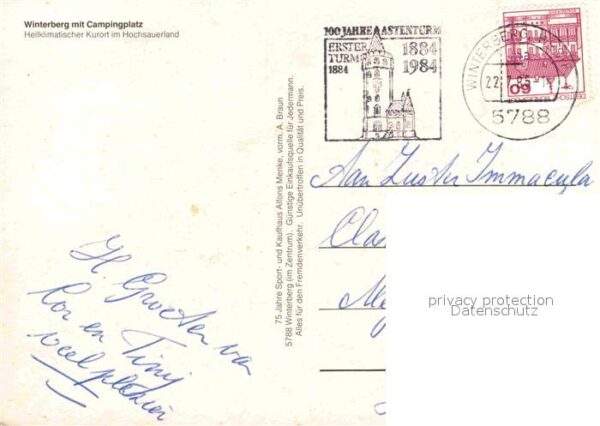 Winterberg mit Campingplatz
Heilklimatischer Kurort im Hochsauerland
100 JAHRE ASTENTURM
ERSTER
TURM
1884
1884
1984
WINTERBERG
22.7.85
5788
60
75 Jahre Sport- und Kaufhaus Alfons Menke, vorm. A. Braun
5788 Winterberg (im Zentrum). Günstige Einkaufsquelle für Jedermann.
Alles für den Fremdenverkehr. Unübertroffen in Qualität und Preis.
Aan Zuster Immacula
Cla
privacy protection
Datenschutz
H. Groeten van
Cor en Tiny
veel plezier